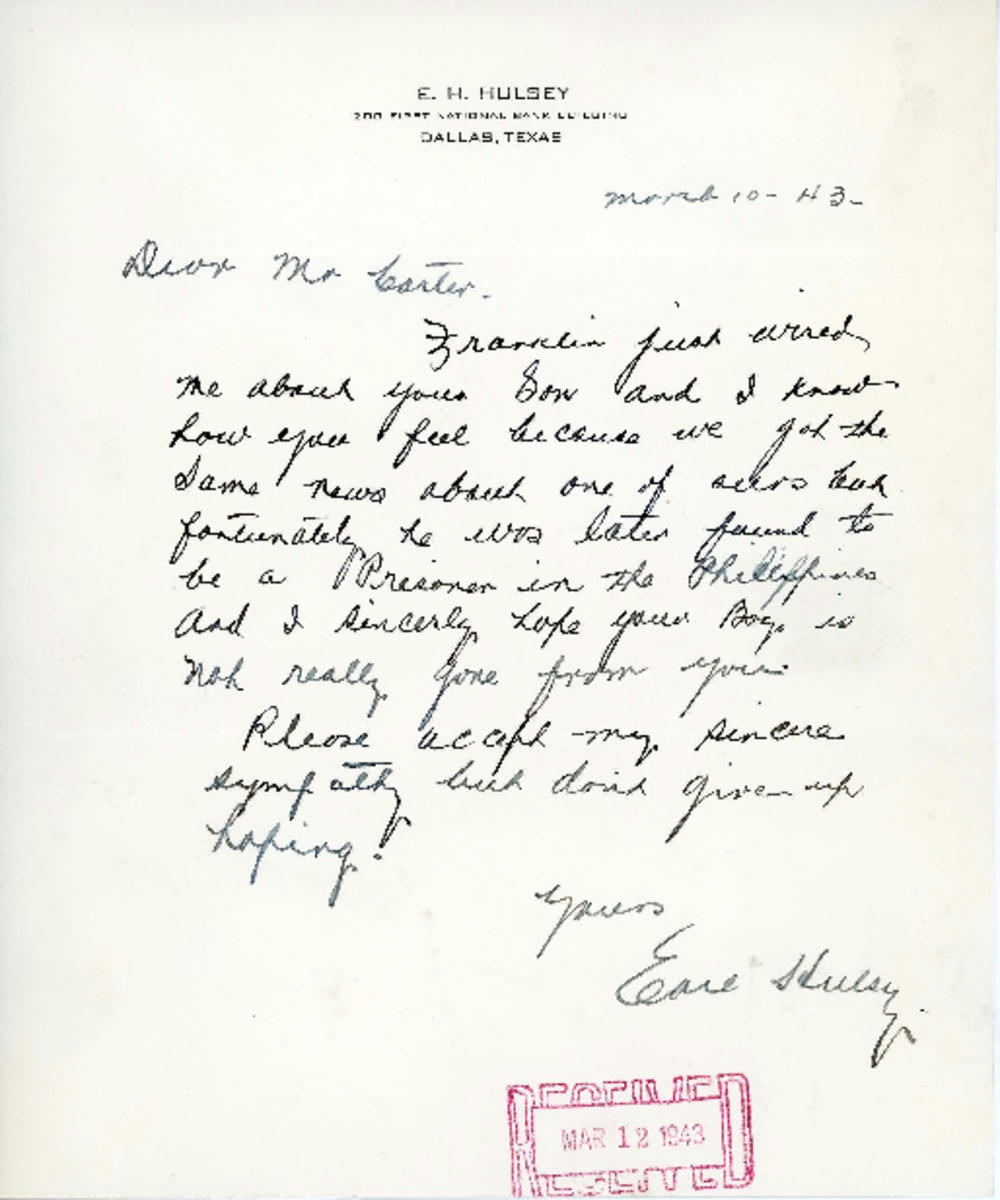 E. H. HULSEY
200 FIRST NATIONAL BANK BUILDING
DALLAS, TEXAS
March 10 - 43 -
Dear Mr Carter.
Franklin just wired
me about your Son and I know
how you feel because we got the
Same news about one of ours but
fortunately he was later found to
be a Prisoner in the Philippines
And I sincerly hope your Boy is
not really gone from you.
Please accept my sincere
sympathy but dont give up
hoping.
Yours
Earl Hulsey
RECEIVED
MAR 12 1943
RECEIVED